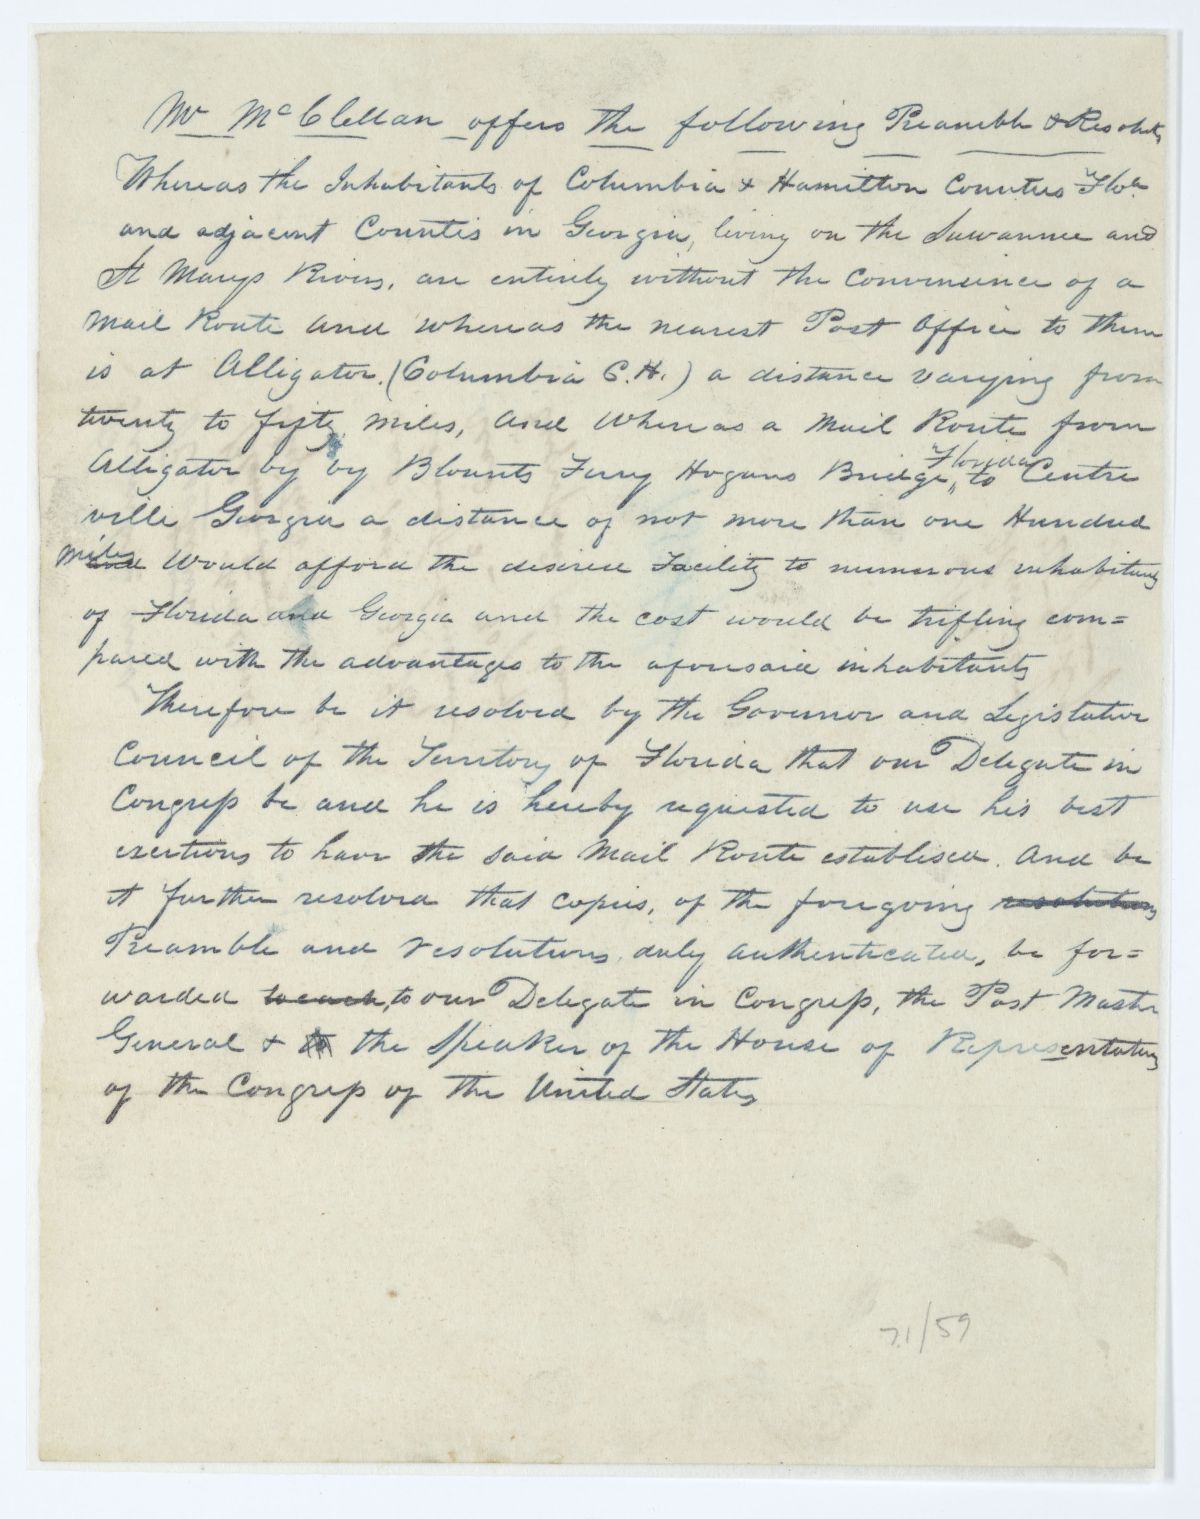 Mr McClellan offers the following Preamble & Resolutns
Whereas the Inhabitants of Columbia & Hamilton Counties Floa
and adjacent Counties in Georgia, living on the Suwannee and
St Marys Rivers, are entirely without the Convenience of a
Mail Route and whereas the nearest Post Office to them
is at Alligator. (Columbia C.H.) a distance varying from
twenty to fifty miles, and Whereas a Mail Route from
Alligator by by Blounts Ferry Hogans Bridge, Florida to Centre
ville Georgia a distance of not more than one Hundred
miles would afford the desired Facility to numerous inhabitants
of Florida and Georgia and the cost would be trifling com=
pared with the advantages to the aforesaid inhabitants
Therefore be it resolved by the Governor and Legislative
Council of the Territory of Florida that our Delegate in
Congress be and he is hereby requested to use his best
exertions to have the said Mail Route establised. And be
it further resolved that copies, of the foregoing resolutions
Preamble and resolutions, duly authenticated, be for=
warded to each, to our Delegate in Congress, the Post Master
General & to the Speaker of the House of Representatives
of the Congress of the United States
71/59